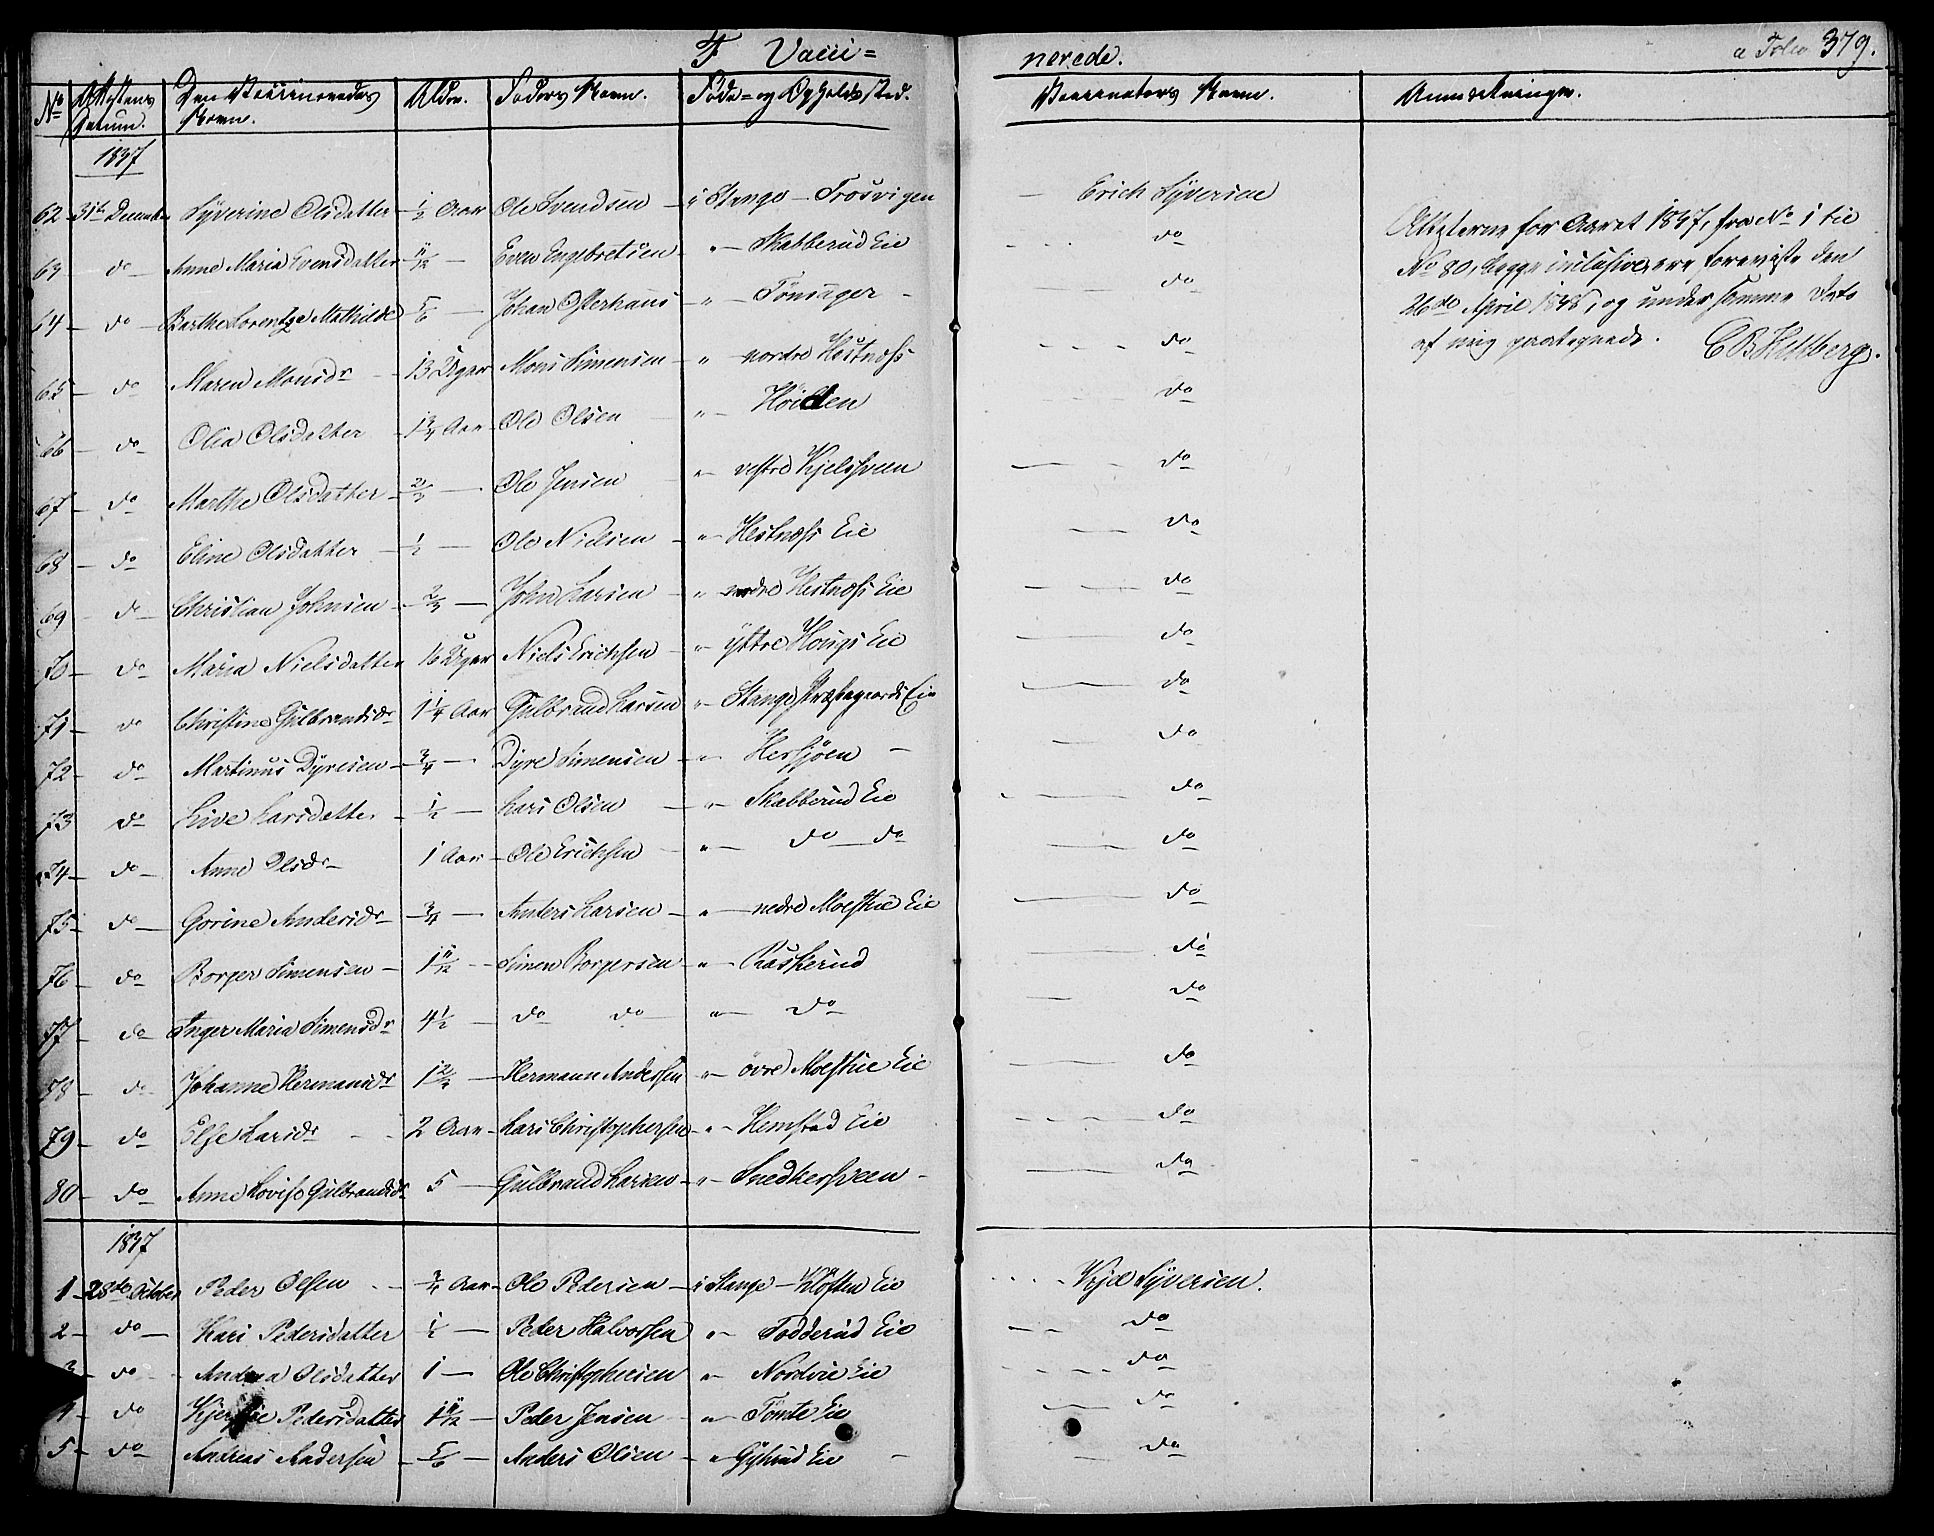 F Vacci=
nerede.
a Folio 379.
No Attestens Datum. Den Vaccineredes Navn. Alder. Faders Navn. Føde- og Opholdssted. Vaccinators Navn. Anmærkninger.
1837
62 31te Decemb. Syverine Olsdatter ½ Aar Ole Svendsen i Stange – Frösvigen – Erich Syversen
63 do Anne Maria Evensdatter 11/12 Even Engebretsen " Skabberud Eie do
64 do Barthe Lorentze Mathilde 5/6 Johan Osterhaus " Tönsager do
65 do Maren Monsdr 13 Uger Mons Simensen " nordre Hestnæss do
66 do Olea Olsdatter 1¾ Aar Ole Olsen " Höiden do
67 do Marthe Olsdatter 2/3 Ole Jensen " vestre Kjelssveen do
68 do Eline Olsdatter ½ Ole Nielsen " Hestnæss Eie do
69 do Christian Johnsen ¾ John Larsen " nedre Hestnæss Eie do
70 do Maria Nielsdatter 16 Uger Niels Erichsen " yttre Hougs Eie do
71 do Christine Gulbrandsdr 1¼ Aar Gulbrand Larsen " Stange Præstegaards Eie do
72 do Martinus Dyresen ¾ Dyre Simensen " Hersjöen do
73 do Live Larsdatter ½ Lars Olsen " Skabberud Eie do
74 do Anne Olsdr 1 Aar Ole Erichsen " do do do
75 do Gorine Andersdr ¾ Anders Larsen " nedre Moestue Eie do
76 do Borger Simensen 1 11/12 Simen Borgersen " Raskerud do
77 do Inger Maria Simensdr 4½ do do " do do
78 do Johanne Hermansdr 1¾ Hermann Andersen " övre Moestue Eie do
79 do Else Larsdr 2 Aar Lars Christophersen " Hemstad Eie do
80 do Anne Lovise Gulbrandsdr 5 Gulbrand Larsen " Snedkersveen do
Attesterne for Aaret 1837, fra No 1 til
No 80, begge inclusive, ere foreviste den
26de April 1838, og under samme Dato
af mig paategnede.
1837
1 28de October Peder Olsen ¾ Aar Ole Pedersen i Stange – Kloften Eie Kjel Syversen.
2 do Kari Pedersdatter ½ Peder Halvorsen " Fodderud Eie do
3 do Andrea Olsdatter 1 Ole Christophersen " Nordvie Eie do
4 do Kjerstie Pedersdatter 1 11/12 Peder Jensen " Tomte Eie do
5 do Andreas Andersen 5/6 Anders Olsen " Gyhrud Eie do